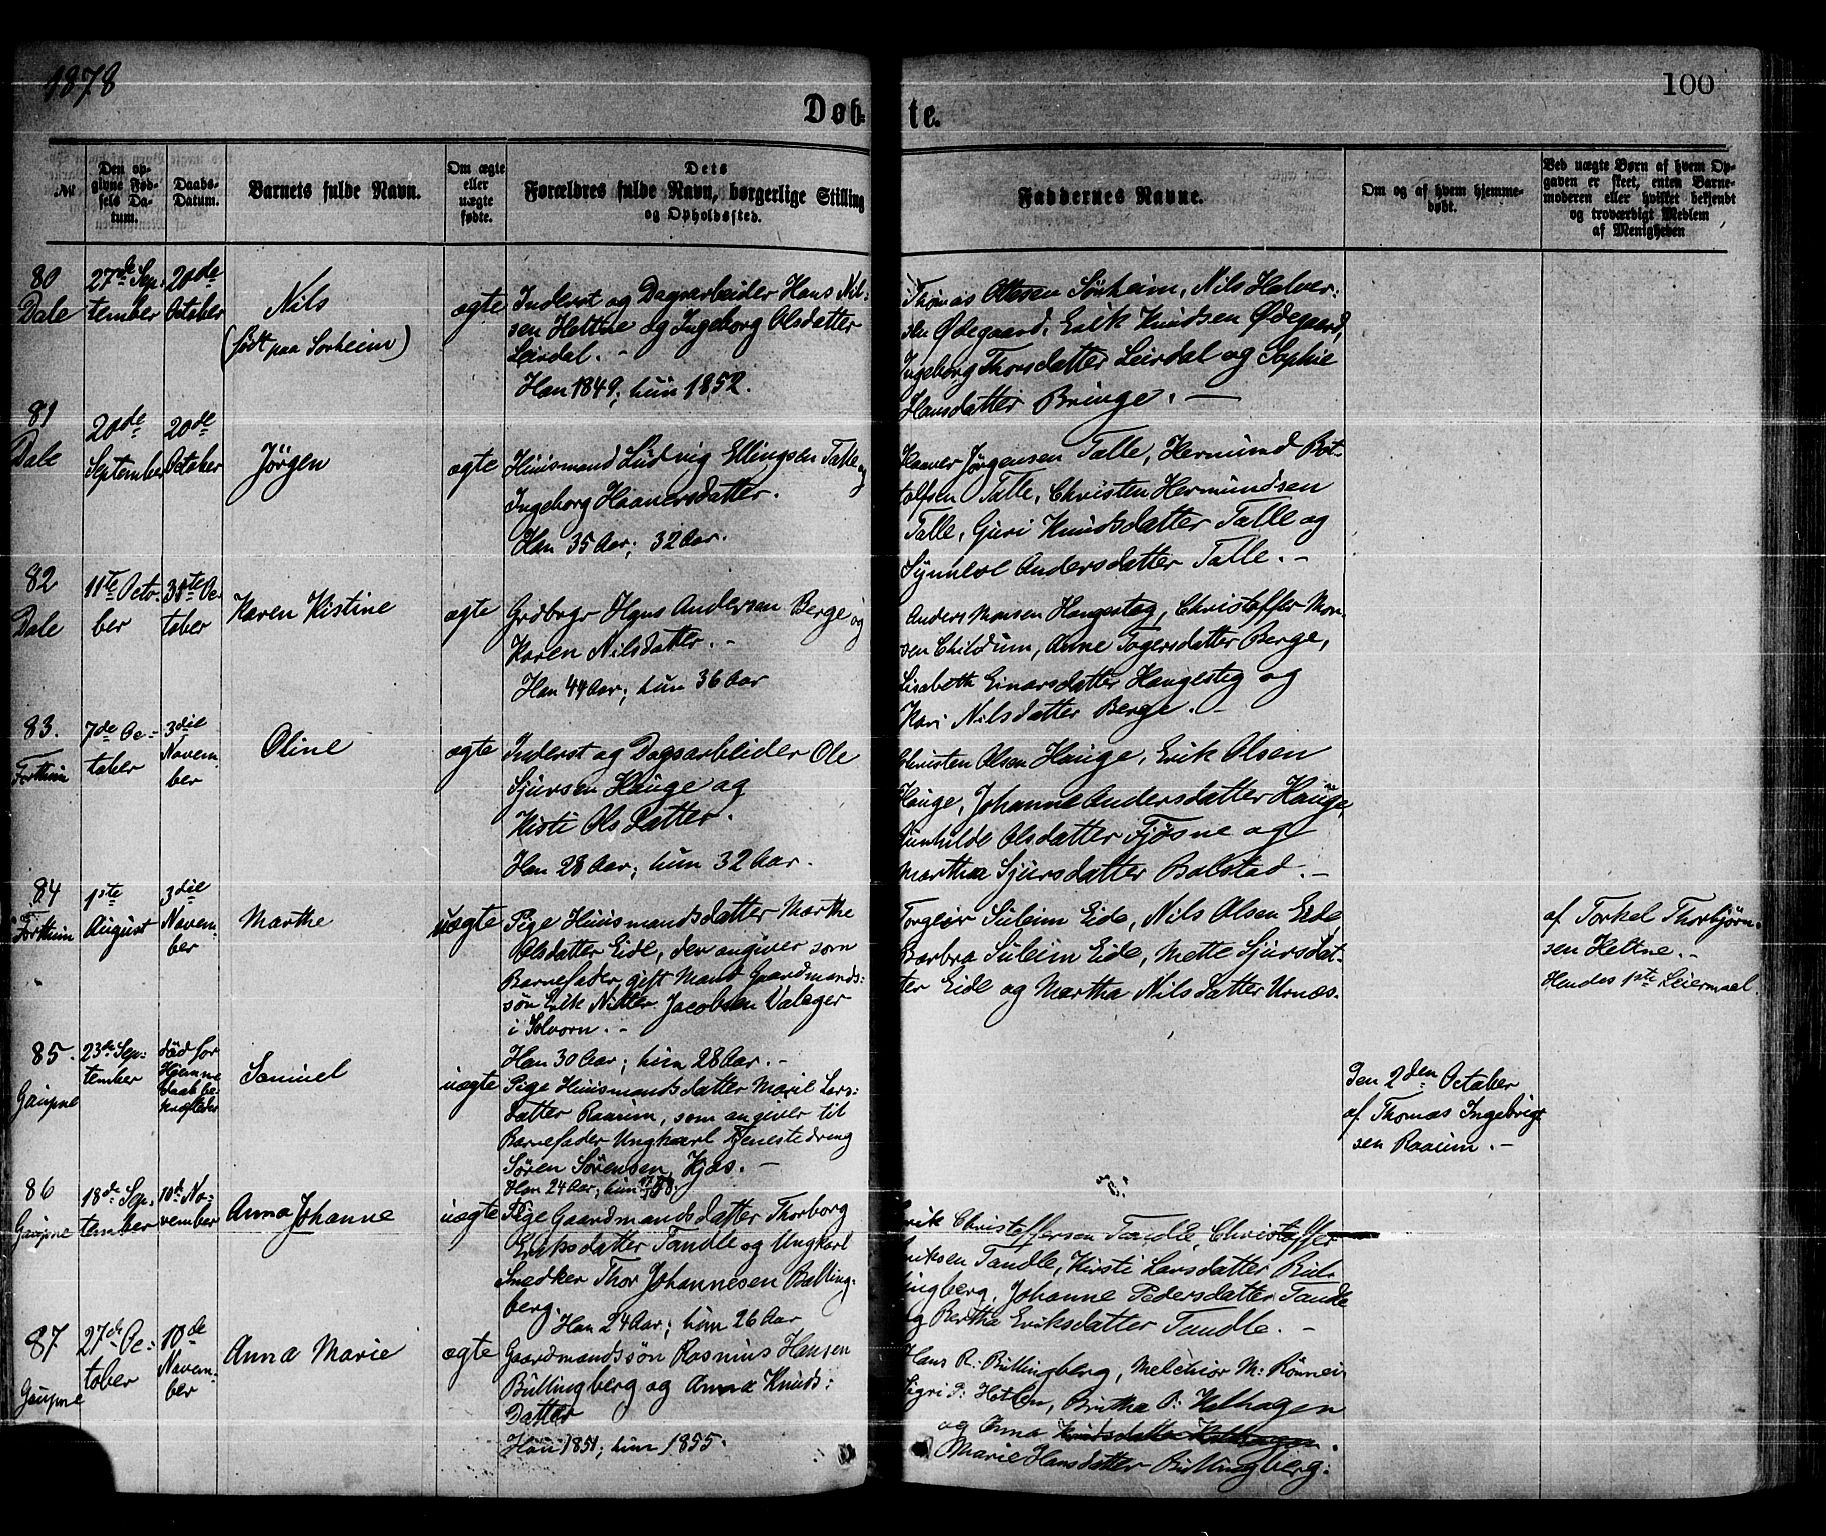 1878
100
Døbte.
No.
Den opgivne Fødsels Datum.
Daabs-Datum.
Barnets fulde Navn.
Om ægte eller uægte fødte.
Dets Forældres fulde Navn, borgerlige Stilling og Opholdssted.
Faddernes Navne.
Om og af hvem hjemmedøbt.
Ved uægte Børn af hvem Opgaven er skeet, enten Barnemoderen eller hvilket bekjendt og troværdigt Medlem af Menigheden
80
Dale
27de Sep-
tember
20de
October
Nils
(født paa Sørheim)
ægte
Inderst og Dagsarbeider Hans Nil-
sen Hettne og Ingeborg Olsdatter
Leirdal. -
Han 1849; hun 1852.
Thomas Ottesen Sørheim, Nils Halver-
sen Ødegaard, Erik Knudsen Ødegaard,
Ingeborg Thorsdatter Leirdal og Sophie
Hansdatter Bringe. -
81
Dale
20de
September
20de
October
Jörgen
ægte
Huusmand Ludvig Ellingsen Talle og
Ingeborg Haaversdatter.
Han 35 Aar; 32 Aar.
Haaver Jørgensen Talle, Hermund Bot-
tolfsen Talle, Christen Hermundsen
Talle, Guri Knudsdatter Talle og
Synneve Andersdatter Talle. -
82
Dale
11te Octo-
ber
31te Oc-
tober
Karen Kistine
ægte
Grdbrgr Hans Andersen Berge og
Karen Nilsdatter. -
Han 44 Aar; hun 36 Aar
Anders Monsen Haugesteg, Christoffer Mon-
sen Childum, Anne Togersdatter Berge,
Lisabeth Einarsdatter Haugesteg og
Kari Nilsdatter Berge. -
83.
Forthun
7de Oc-
tober
3die
Novem-
ber
Oline
ægte
Inderst og Dagsarbeider Ole
Sjursen Hauge og
Kisti Olsdatter.
Han 28 Aar; hun 32 Aar.
Christen Olsen Hauge, Erik Olsen
Hauge, Johanne Andersdatter Hauge,
Gunhilde Olsdatter Fjøsne og
Martha Sjursdatter Bolstad. -
84
Forthun
1ste
August
3die
Novem-
ber
Marthe
uægte
Pige Huusmandsdatter Marthe
Olsdatter Eide, der angiver som
Barnefader gift Mand Gaardmands-
søn Erik Jacobsen Valeger
i Solvorn. -
Han 30 Aar; hun 28 Aar. -
Torgeir Suleim Eide, Nils Olsen Eide
Barbra Suleim Eide, Mette Sjursdat-
ter Eide og Martha Nilsdatter Urnæs.
af Torkel Thorbjørn-
sen Hettne. -
Hendes 1ste Leiermaal.
85.
Gaupne
23de Sep-
tember
død før
Hjemme
daab be-
kræftedes
Samuel
uægte
Pige Huusmandsdatter Maril Lars-
datter Raarim, som angiver til
Barnefader Ungkarl Tjenestedreng
Sören Sörensen Kjøs. -
Han 24 Aar; hun
Den 2den October
af Thomas Ingebrigt
sen Raarim. -
86
Gaupne
18de Sep-
tember
10de No-
vember
Anna Johanne
uægte
Pige Gaardmandsdatter Thorborg
Eriksdatter Tandle og Ungkarl
Snedker Thor Johannesen Bulling-
berg.
Han 24 Aar; hun 26 Aar
Erik Christoffersen Tandle, Christoffer
Eriksen Tandle, Kirsti Larsdatter Bul-
lingberg, Johanne Pedersdatter Tandle
og Bertha Eriksdatter Tandle. -
87
Gaupne
27de Oc-
tober
10de
Novem-
ber
Anna Marie
ægte
Gaardmandssön Rasmus Hansen
Bullingberg og Anna Knuds-
datter
Han 1851; hun 1855.
Hans R: Bullingberg, Melchior M: Rønnei
Sigri P: Brithe P: Kolhagen
og Anna Knudsdatter Kolhagen.
Marie Hansdatter Bullingberg.